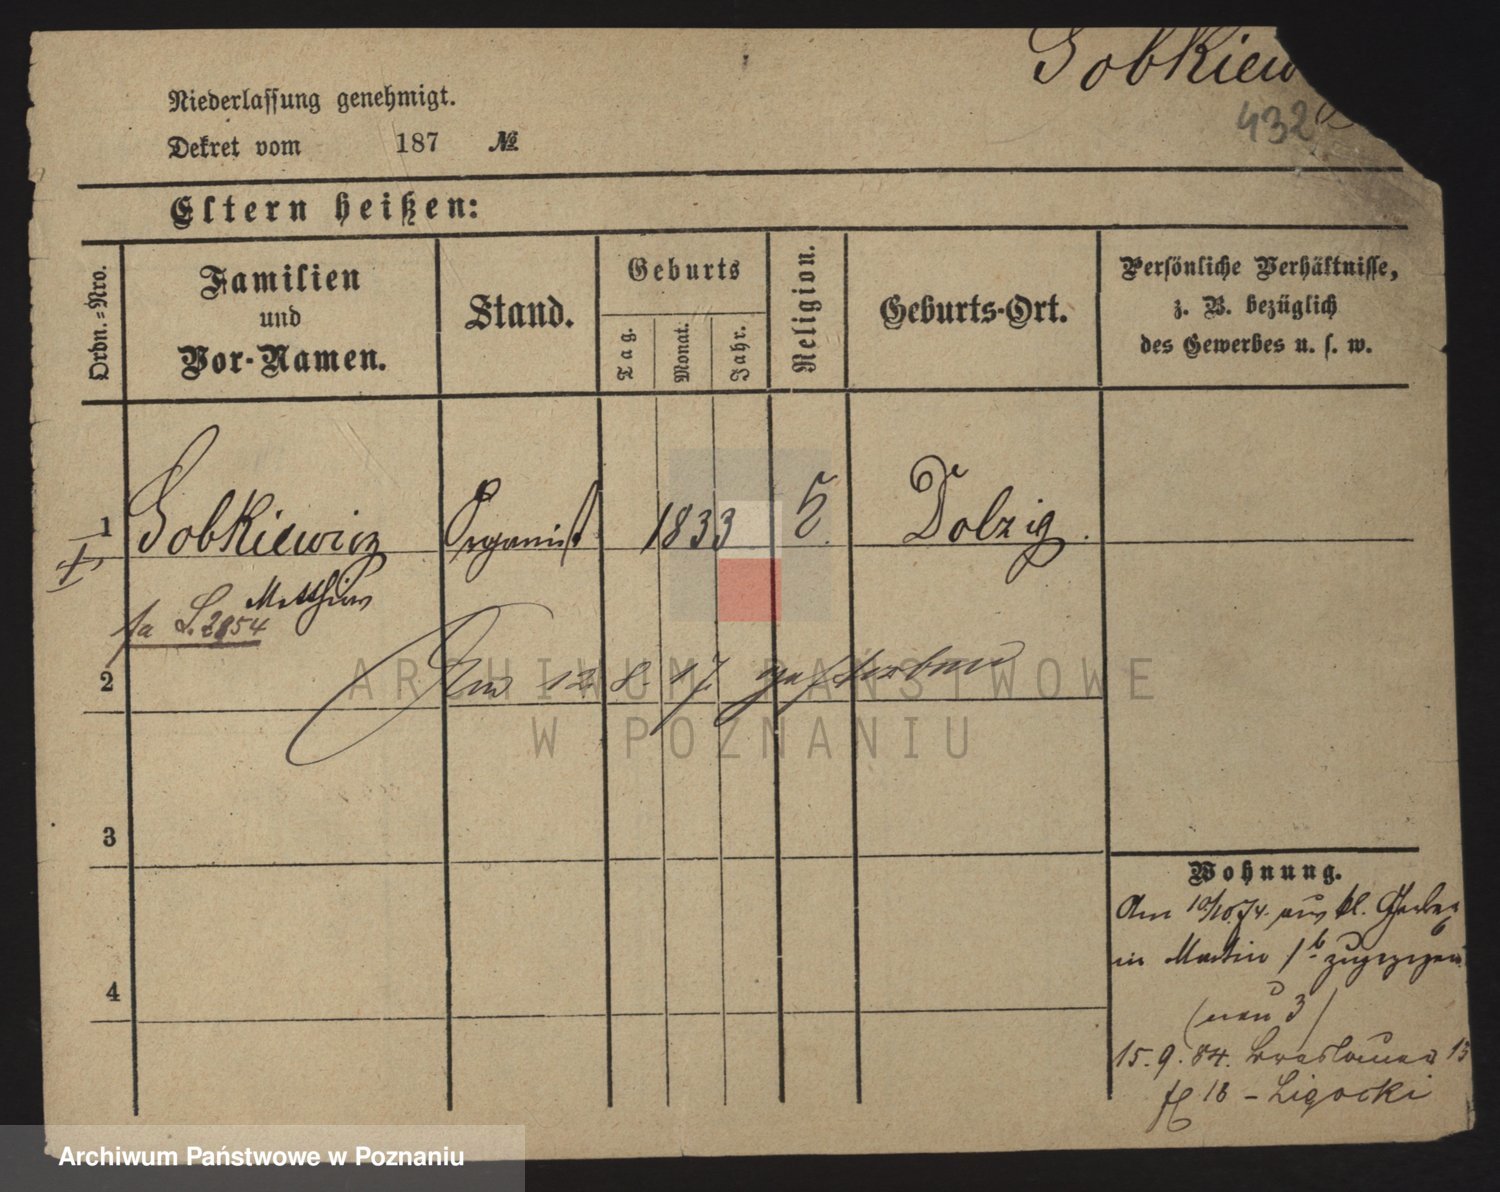 Gobkiew
432
Niederlassung genehmigt.
Dekret vom 187 №
Eltern heißen:
Ordn.=Nro.
Familien
und
Vor-Namen.
Stand.
Geburts
Tag.
Monat.
Jahr.
Religion.
Geburts-Ort.
Persönliche Verhältnisse,
z. B. bezüglich
des Gewerbes u. s. w.
1 Gobkiewicz Organist 1833 Dolzig.
Matthias
2
Am 12. 8. 17 gestorben
3
4
Wohnung.
Am 10/10.74. aus kl. Gerber 6
in Martin 1b zugezogen
(neu 3)
15. 9. 84. Breslauer 13
18 - Ligocki
ARCHIWUM PAŃSTWOWE
W POZNANIU
Archiwum Państwowe w Poznaniu